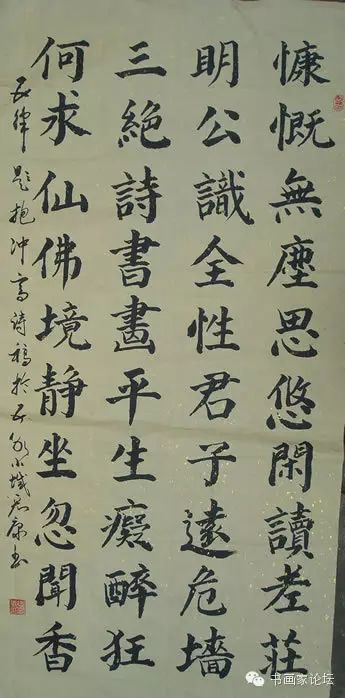 慷慨無塵思悠閑讀老莊
明公識全性君子遠危墻
三絕詩書畫平生癡醉狂
何求仙佛境靜坐忽聞香
五律 題抱冲斋詩稿於
书画家论坛